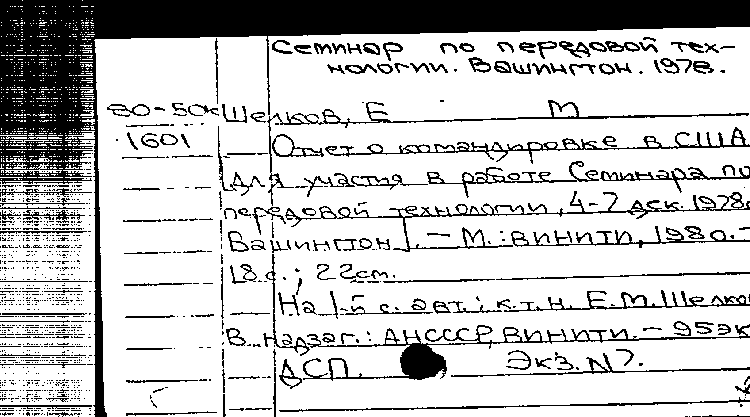 Семинар по передовой тех-
нологии. Вашингтон. 1978.
80-50к Шелков, Е М
1601 Отчет о командировке в США
[для участия в работе Семинара по
передовой технологии, 4-7 дек. 1978.
Вашингтон]. - М.: ВИНИТИ, 1980. -
18 с.; 22 см.
На 1-й с. авт.: к.т.н. Е.М. Шелков
В надзаг.: АН СССР, ВИНИТИ. - 95 эк
ДСП. Экз. N 7.